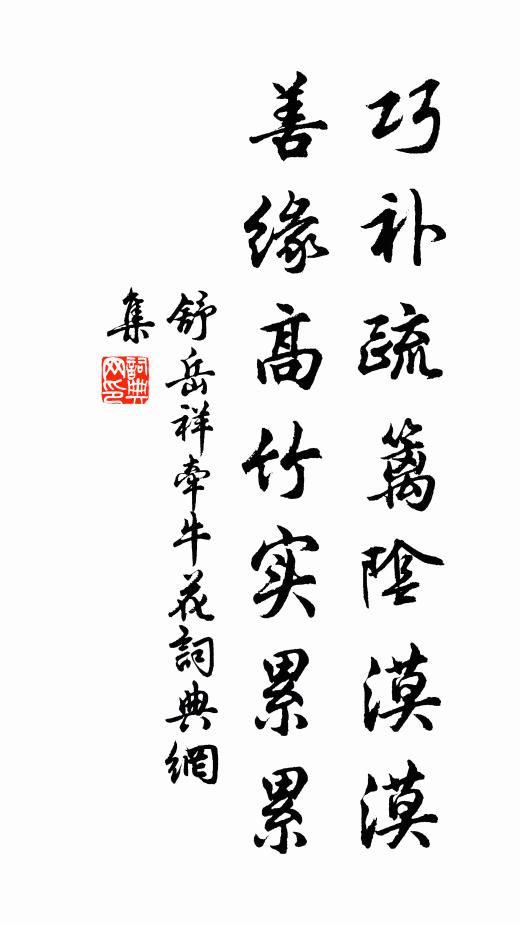 巧补疏篱陰漠漠
善缘高竹实累累
舒岳祥牽牛花詞典網
集
詞典
网印